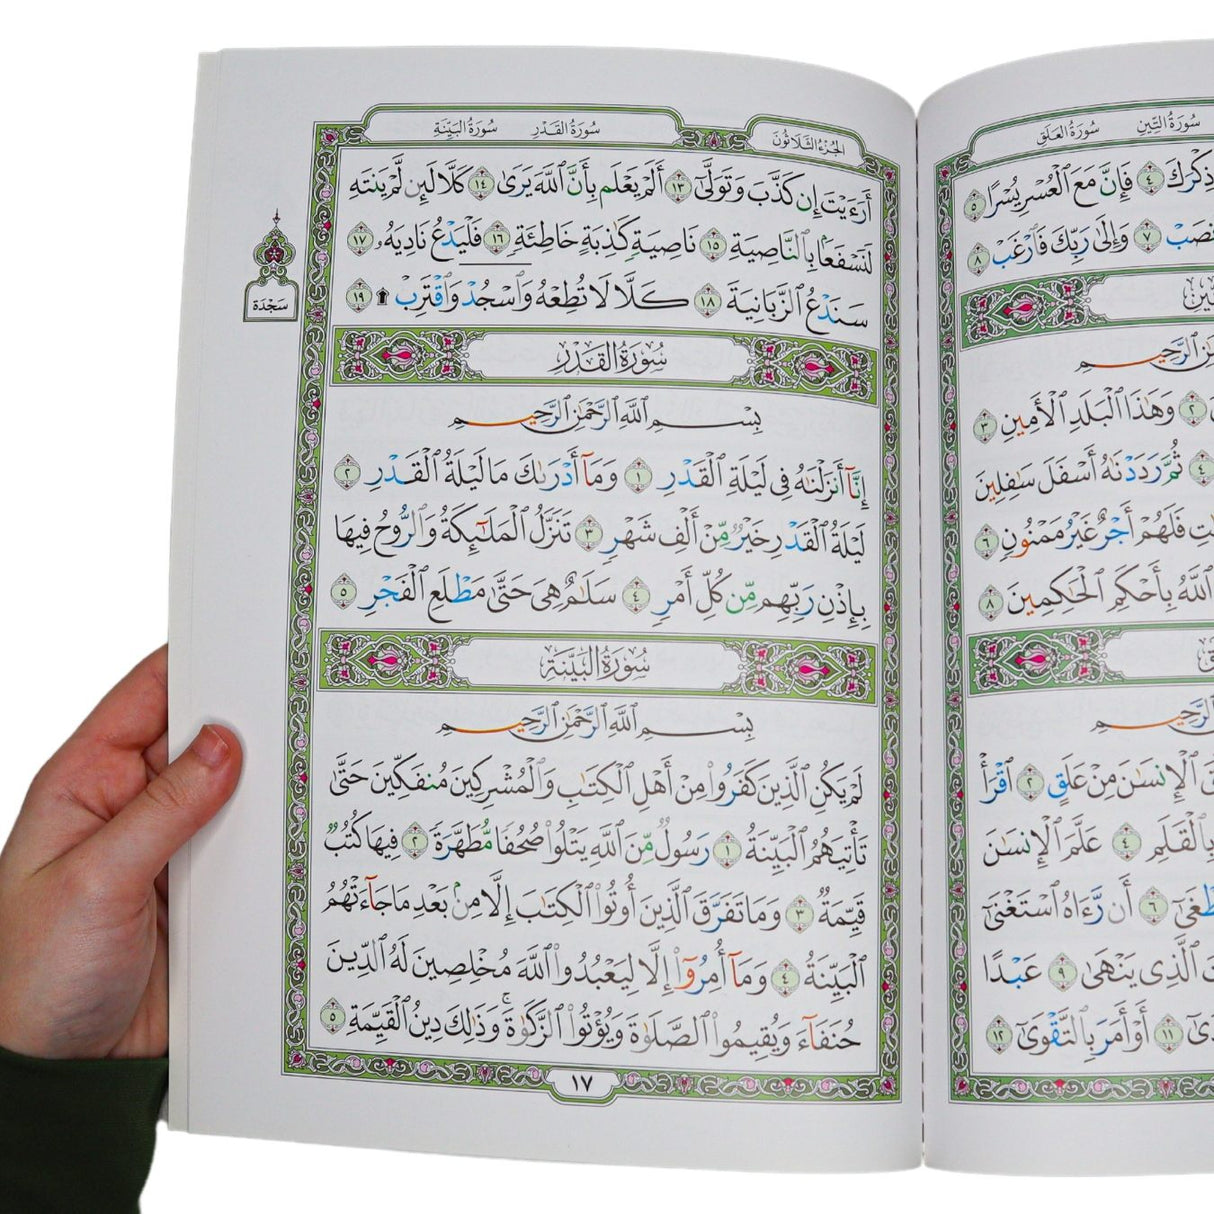 سُورَةُ التِّينِ سُورَةُ العَلَقِ
ذِكْرَكَ ٤ فَإِنَّ مَعَ ٱلْعُسْرِ يُسْرًا ٥
ٱنصَبْ ٧ وَإِلَىٰ رَبِّكَ فَٱرْغَب ٨
ٱلرَّحِيمِ
٢ وَهَٰذَا ٱلْبَلَدِ ٱلْأَمِينِ ٣
٤ ثُمَّ رَدَدْنَٰهُ أَسْفَلَ سَٰفِلِينَ
فَلَهُمْ أَجْرٌ غَيْرُ مَمْنُونٍ ٦
ٱللَّهُ بِأَحْكَمِ ٱلْحَٰكِمِينَ ٨
ٱلرَّحِيمِ
ٱلْإِنسَٰنَ مِنْ عَلَقٍ ٢ ٱقْرَأْ
بِٱلْقَلَمِ ٤ عَلَّمَ ٱلْإِنسَٰنَ
٦ أَن رَّءَاهُ ٱسْتَغْنَىٰٓ
ٱلَّذِى يَنْهَىٰ ٩ عَبْدًا
١١ أَوْ أَمَرَ بِٱلتَّقْوَىٰٓ ١٢
الجُزْءُ الثَّلَاثُونَ سُورَةُ القَدْرِ سُورَةُ البَيِّنَةِ
أَرَءَيْتَ إِن كَذَّبَ وَتَوَلَّىٰٓ ١٣ أَلَمْ يَعْلَم بِأَنَّ ٱللَّهَ يَرَىٰ ١٤ كَلَّا لَئِن لَّمْ يَنتَهِ
لَنَسْفَعًۢا بِٱلنَّاصِيَةِ ١٥ نَاصِيَةٍ كَٰذِبَةٍ خَاطِئَةٍ ١٦ فَلْيَدْعُ نَادِيَهُۥ ١٧
سَنَدْعُ ٱلزَّبَانِيَةَ ١٨ كَلَّا لَا تُطِعْهُ وَٱسْجُدْ وَٱقْتَرِب ١٩
سَجْدَة
سُورَةُ القَدْرِ
بِسْمِ ٱللَّهِ ٱلرَّحْمَٰنِ ٱلرَّحِيمِ
إِنَّآ أَنزَلْنَٰهُ فِى لَيْلَةِ ٱلْقَدْرِ ١ وَمَآ أَدْرَىٰكَ مَا لَيْلَةُ ٱلْقَدْرِ ٢
لَيْلَةُ ٱلْقَدْرِ خَيْرٌ مِّنْ أَلْفِ شَهْرٍ ٣ تَنَزَّلُ ٱلْمَلَٰٓئِكَةُ وَٱلرُّوحُ فِيهَا
بِإِذْنِ رَبِّهِم مِّن كُلِّ أَمْرٍ ٤ سَلَٰمٌ هِىَ حَتَّىٰ مَطْلَعِ ٱلْفَجْرِ ٥
سُورَةُ البَيِّنَةِ
بِسْمِ ٱللَّهِ ٱلرَّحْمَٰنِ ٱلرَّحِيمِ
لَمْ يَكُنِ ٱلَّذِينَ كَفَرُوا۟ مِنْ أَهْلِ ٱلْكِتَٰبِ وَٱلْمُشْرِكِينَ مُنفَكِّينَ حَتَّىٰ
تَأْتِيَهُمُ ٱلْبَيِّنَةُ ١ رَسُولٌ مِّنَ ٱللَّهِ يَتْلُوا۟ صُحُفًا مُّطَهَّرَةً ٢ فِيهَا كُتُبٌ
قَيِّمَةٌ ٣ وَمَا تَفَرَّقَ ٱلَّذِينَ أُوتُوا۟ ٱلْكِتَٰبَ إِلَّا مِنۢ بَعْدِ مَا جَآءَتْهُمُ
ٱلْبَيِّنَةُ ٤ وَمَآ أُمِرُوٓا۟ إِلَّا لِيَعْبُدُوا۟ ٱللَّهَ مُخْلِصِينَ لَهُ ٱلدِّينَ
حُنَفَآءَ وَيُقِيمُوا۟ ٱلصَّلَوٰةَ وَيُؤْتُوا۟ ٱلزَّكَوٰةَ ۚ وَذَٰلِكَ دِينُ ٱلْقَيِّمَةِ ٥
١٧